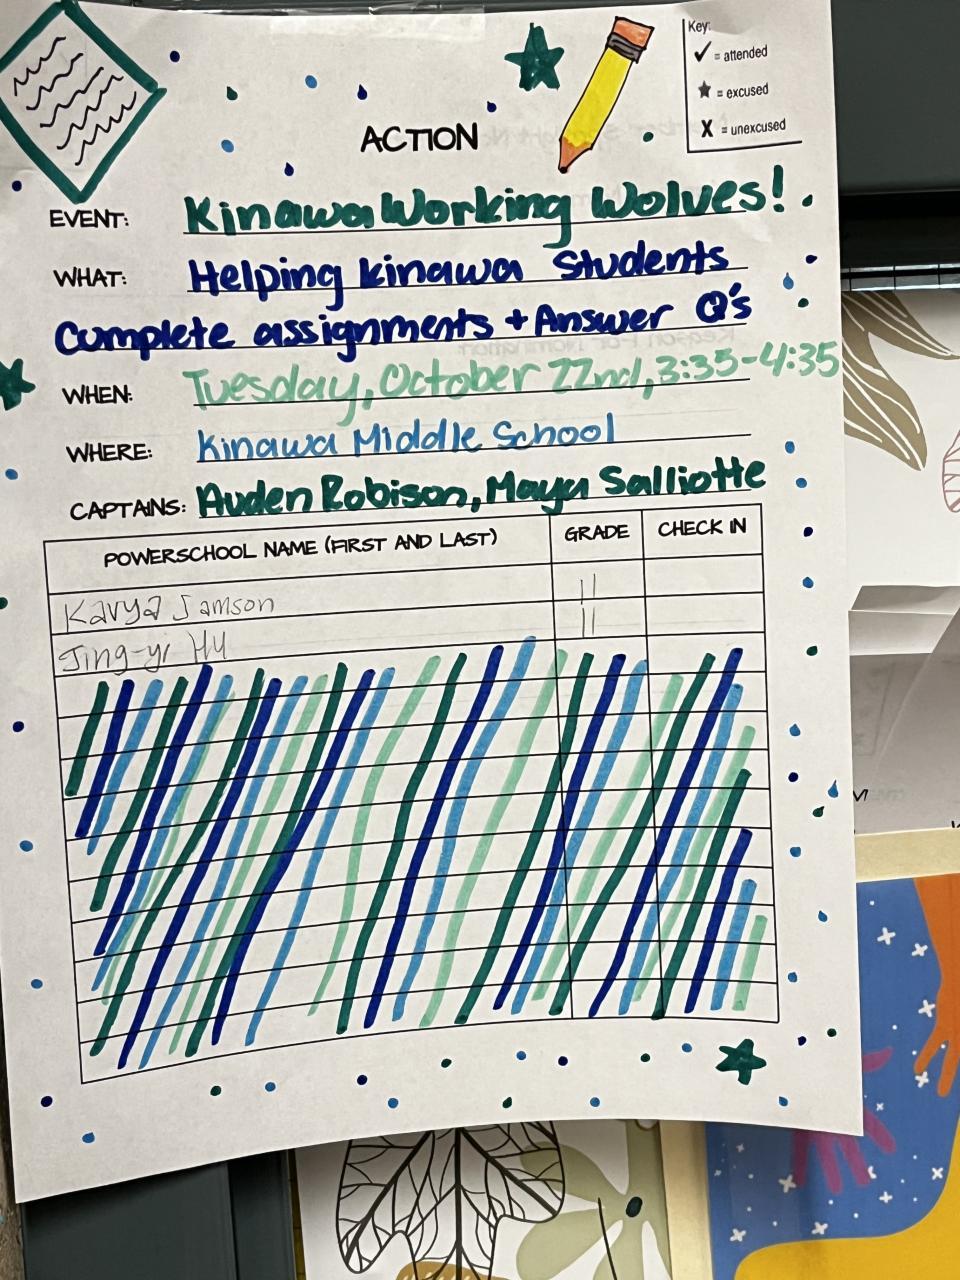 Key:
✓ = attended
★ = excused
X = unexcused
ACTION
EVENT: Kinawa Working Wolves!
WHAT: Helping kinawa students
complete assignments + Answer Q's
WHEN: Tuesday, October 22nd, 3:35-4:35
WHERE: Kinawa Middle School
CAPTAINS: Auden Robison, Maya Salliotte
POWERSCHOOL NAME (FIRST AND LAST) GRADE CHECK IN
Kavya Samson 11
Jing-yi Hu 11